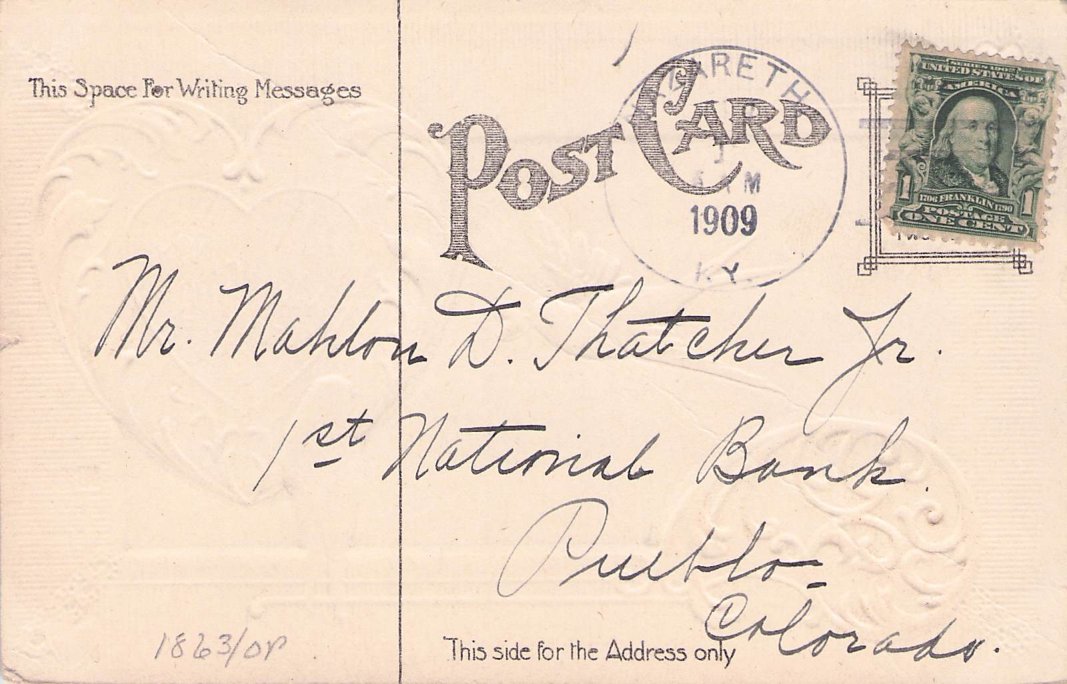 This Space For Writing Messages
POST CARD
NAZARETH
1909
KY.
SERIES 1902
UNITED STATES OF
AMERICA
1706 FRANKLIN 1790
1 POSTAGE 1
ONE CENT
Mr. Mahlon D. Thatcher Jr.
1st National Bank.
Pueblo
Colorado.
1863/or
This side for the Address only